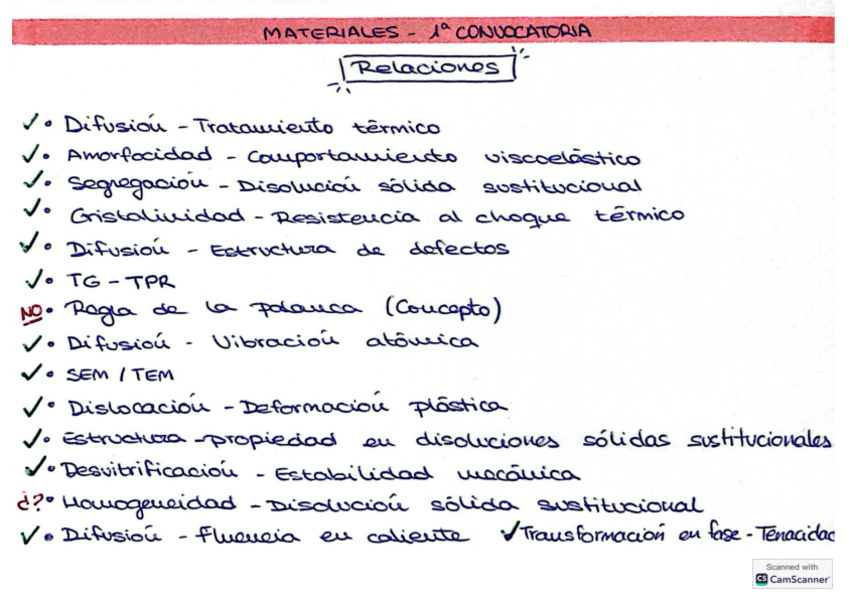 MATERIALES - 1ª CONVOCATORIA
Relaciones
✓• Difusión - Tratamiento térmico
✓• Amorfocidad - Comportamiento viscoelástico
✓• Segregación - Disolución sólida sustitucional
✓• Cristalinidad - Resistencia al choque térmico
✓• Difusión - Estructura de defectos
✓• TG - TPR
NO• Regla de la palanca (Concepto)
✓• Difusión - Vibración atómica
✓• SEM / TEM
✓• Dislocación - Deformación plástica
✓• Estructura - propiedad en disoluciones sólidas sustitucionales
✓• Desvitrificación - Estabilidad mecánica
¿?• Homogeneidad - Disolución sólida sustitucional
✓• Difusión - Fluencia en caliente ✓Transformación en fase - Tenacidad
Scanned with
CS CamScanner